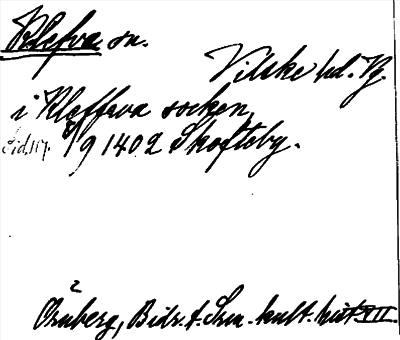 Klefva sn.
Vilske hd. Vg.
i Kleffwa socken
Sid. 117. 8/9 1402 Skofteby.
2
Örnberg, Bidr. t. Sv. kult. hist. VII.